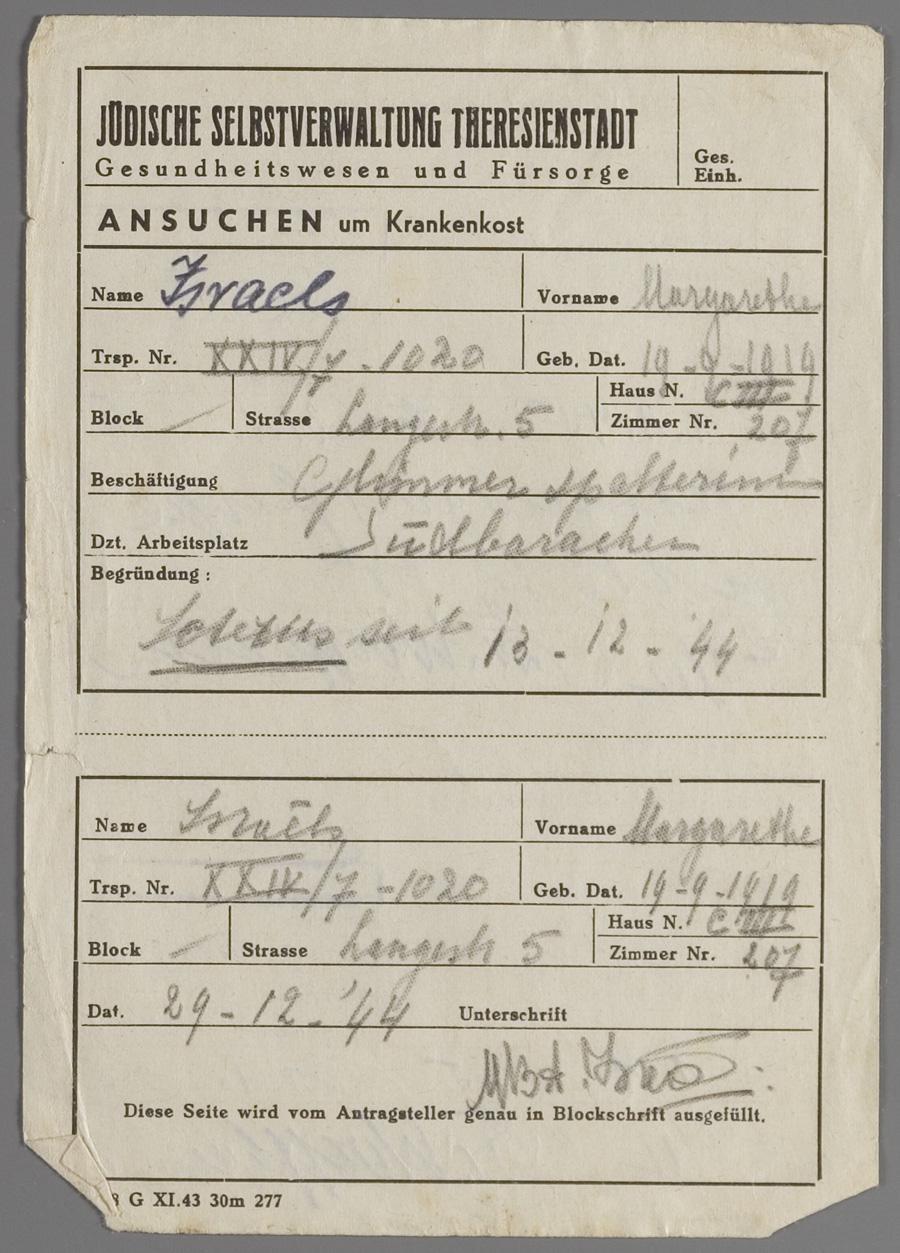 JÜDISCHE SELBSTVERWALTUNG THERESIENSTADT
Gesundheitswesen und Fürsorge
Ges. Einh.
ANSUCHEN um Krankenkost
Name Israels Vorname Margarethe
Trsp. Nr. XXIV/7 - 1020 Geb. Dat. 19-9-1919
Haus N. C III
Block — Strasse Langestr. 5 Zimmer Nr. 207
Beschäftigung Glimmerspalterin
Dzt. Arbeitsplatz Südbaracken
Begründung :
Icterus seit 13 - 12 - '44
Name Israëls Vorname Margarethe
Trsp. Nr. XXIV/7 - 1020 Geb. Dat. 19-9-1919
Haus N. C III
Block — Strasse Langestr 5 Zimmer Nr. 207
Dat. 29 - 12 - '44 Unterschrift
Diese Seite wird vom Antragsteller genau in Blockschrift ausgefüllt.
G XI.43 30m 277